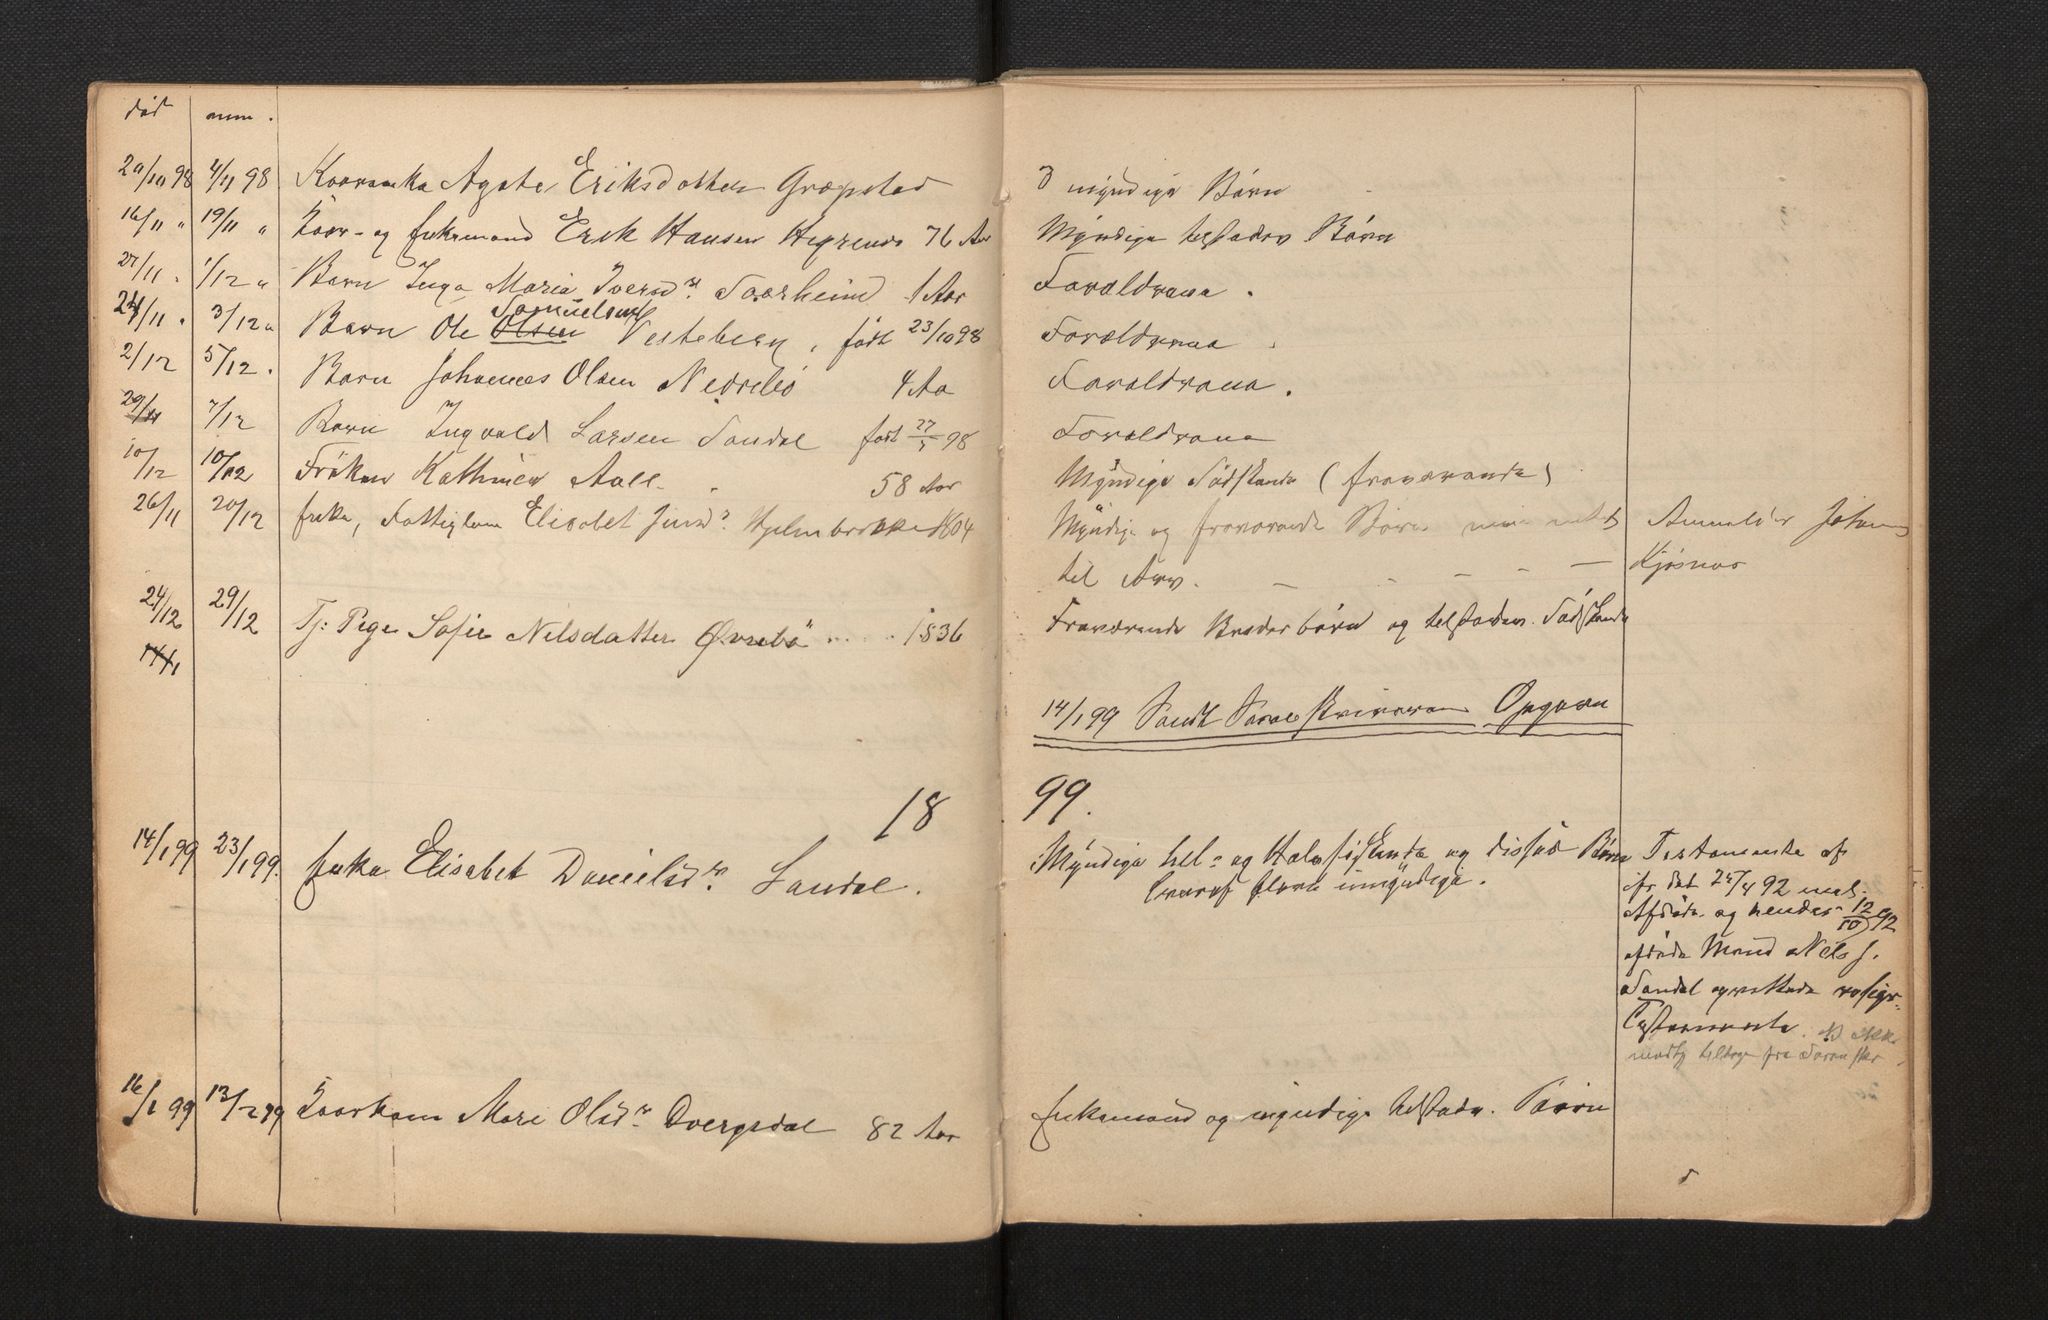 død anm.
29/10 98 4/11 98 Kaarenke Agate Eriksdotter Græpstad 3 myndige Børn
16/11 " 19/11 " Kaar- og Enkemand Erik Hansen Hegrenes 76 Aar Myndige tilstædev. Børn
27/11 " 1/12 " Barn Inga Maria Iversdr. Aarheim 1 Aar Forældrene.
24/11 " 3/12 " Barn Ole Olsen Samuelsen Vesteberg, født 23/10 98 Forældrene
2/12 5/12 " Barn Johannes Olsen Nedrebö 4 Aa Forældrene.
29/11 7/12 Barn Ingvald Larsen Sandal født 27/ 98 Forældrene
10/12 10/12 Fröken Kathinca Aall 58 Aar Myndige Södskende (fraværende)
26/11 20/12 Enke, Fattiglem Elisabet Jensdr. Hjelmbrekke 1804 Myndige og fraværende Børn men intet Anmelder Johan
til Arv. — — — — Kjøsnes
24/12 29/12 Tj: Pige Sofie Nilsdatter Øvrebö ..... 1836 Fraværende Broderbørn og tilstædev. Södskende
14/1
14/1 99 Sendt Sorenskriveren Opgaven
18 99.
14/1 99 23/1 99. Enke Elisabet Danielsdr. Sandal. Myndige hel- og Halvsøskende og disses Børn
hvoraf flere umyndige.
Testamente af
24/4 92 mel.
Afdöde og hendes 12/10 92
afdøde Mand Nels J.
Sandal oprettede
Testamente. ikke
modt. tilbage fra Sorenskr.
16/1 99 13/2 99 Kaarkone Mari Olsdr. Dvergsdal 82 Aar Enkemand og myndige tilstædev. Børn